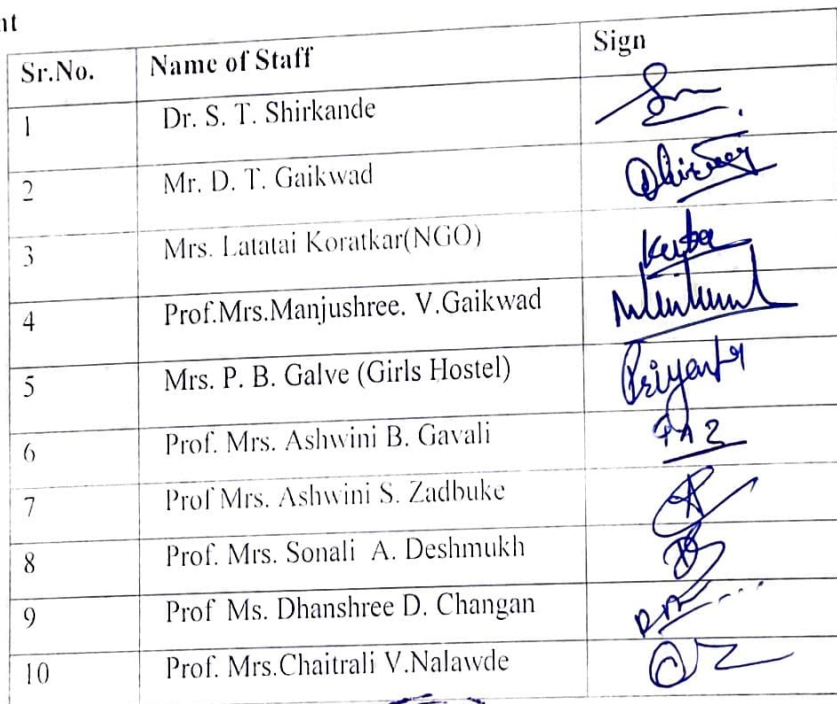 nt
Sr.No. Name of Staff Sign
1 Dr. S. T. Shirkande
2 Mr. D. T. Gaikwad
3 Mrs. Latatai Koratkar(NGO)
4 Prof.Mrs.Manjushree. V.Gaikwad
5 Mrs. P. B. Galve (Girls Hostel)
6 Prof. Mrs. Ashwini B. Gavali
7 Prof Mrs. Ashwini S. Zadbuke
8 Prof. Mrs. Sonali A. Deshmukh
9 Prof Ms. Dhanshree D. Changan
10 Prof. Mrs.Chaitrali V.Nalawde